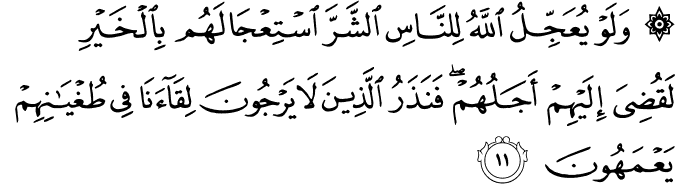 ۞ وَلَوۡ يُعَجِّلُ ٱللَّهُ لِلنَّاسِ ٱلشَّرَّ ٱسۡتِعۡجَالَهُم بِٱلۡخَيۡرِ
لَقُضِيَ إِلَيۡهِمۡ أَجَلُهُمۡۖ فَنَذَرُ ٱلَّذِينَ لَا يَرۡجُونَ لِقَآءَنَا فِي طُغۡيَٰنِهِمۡ
يَعۡمَهُونَ ١١